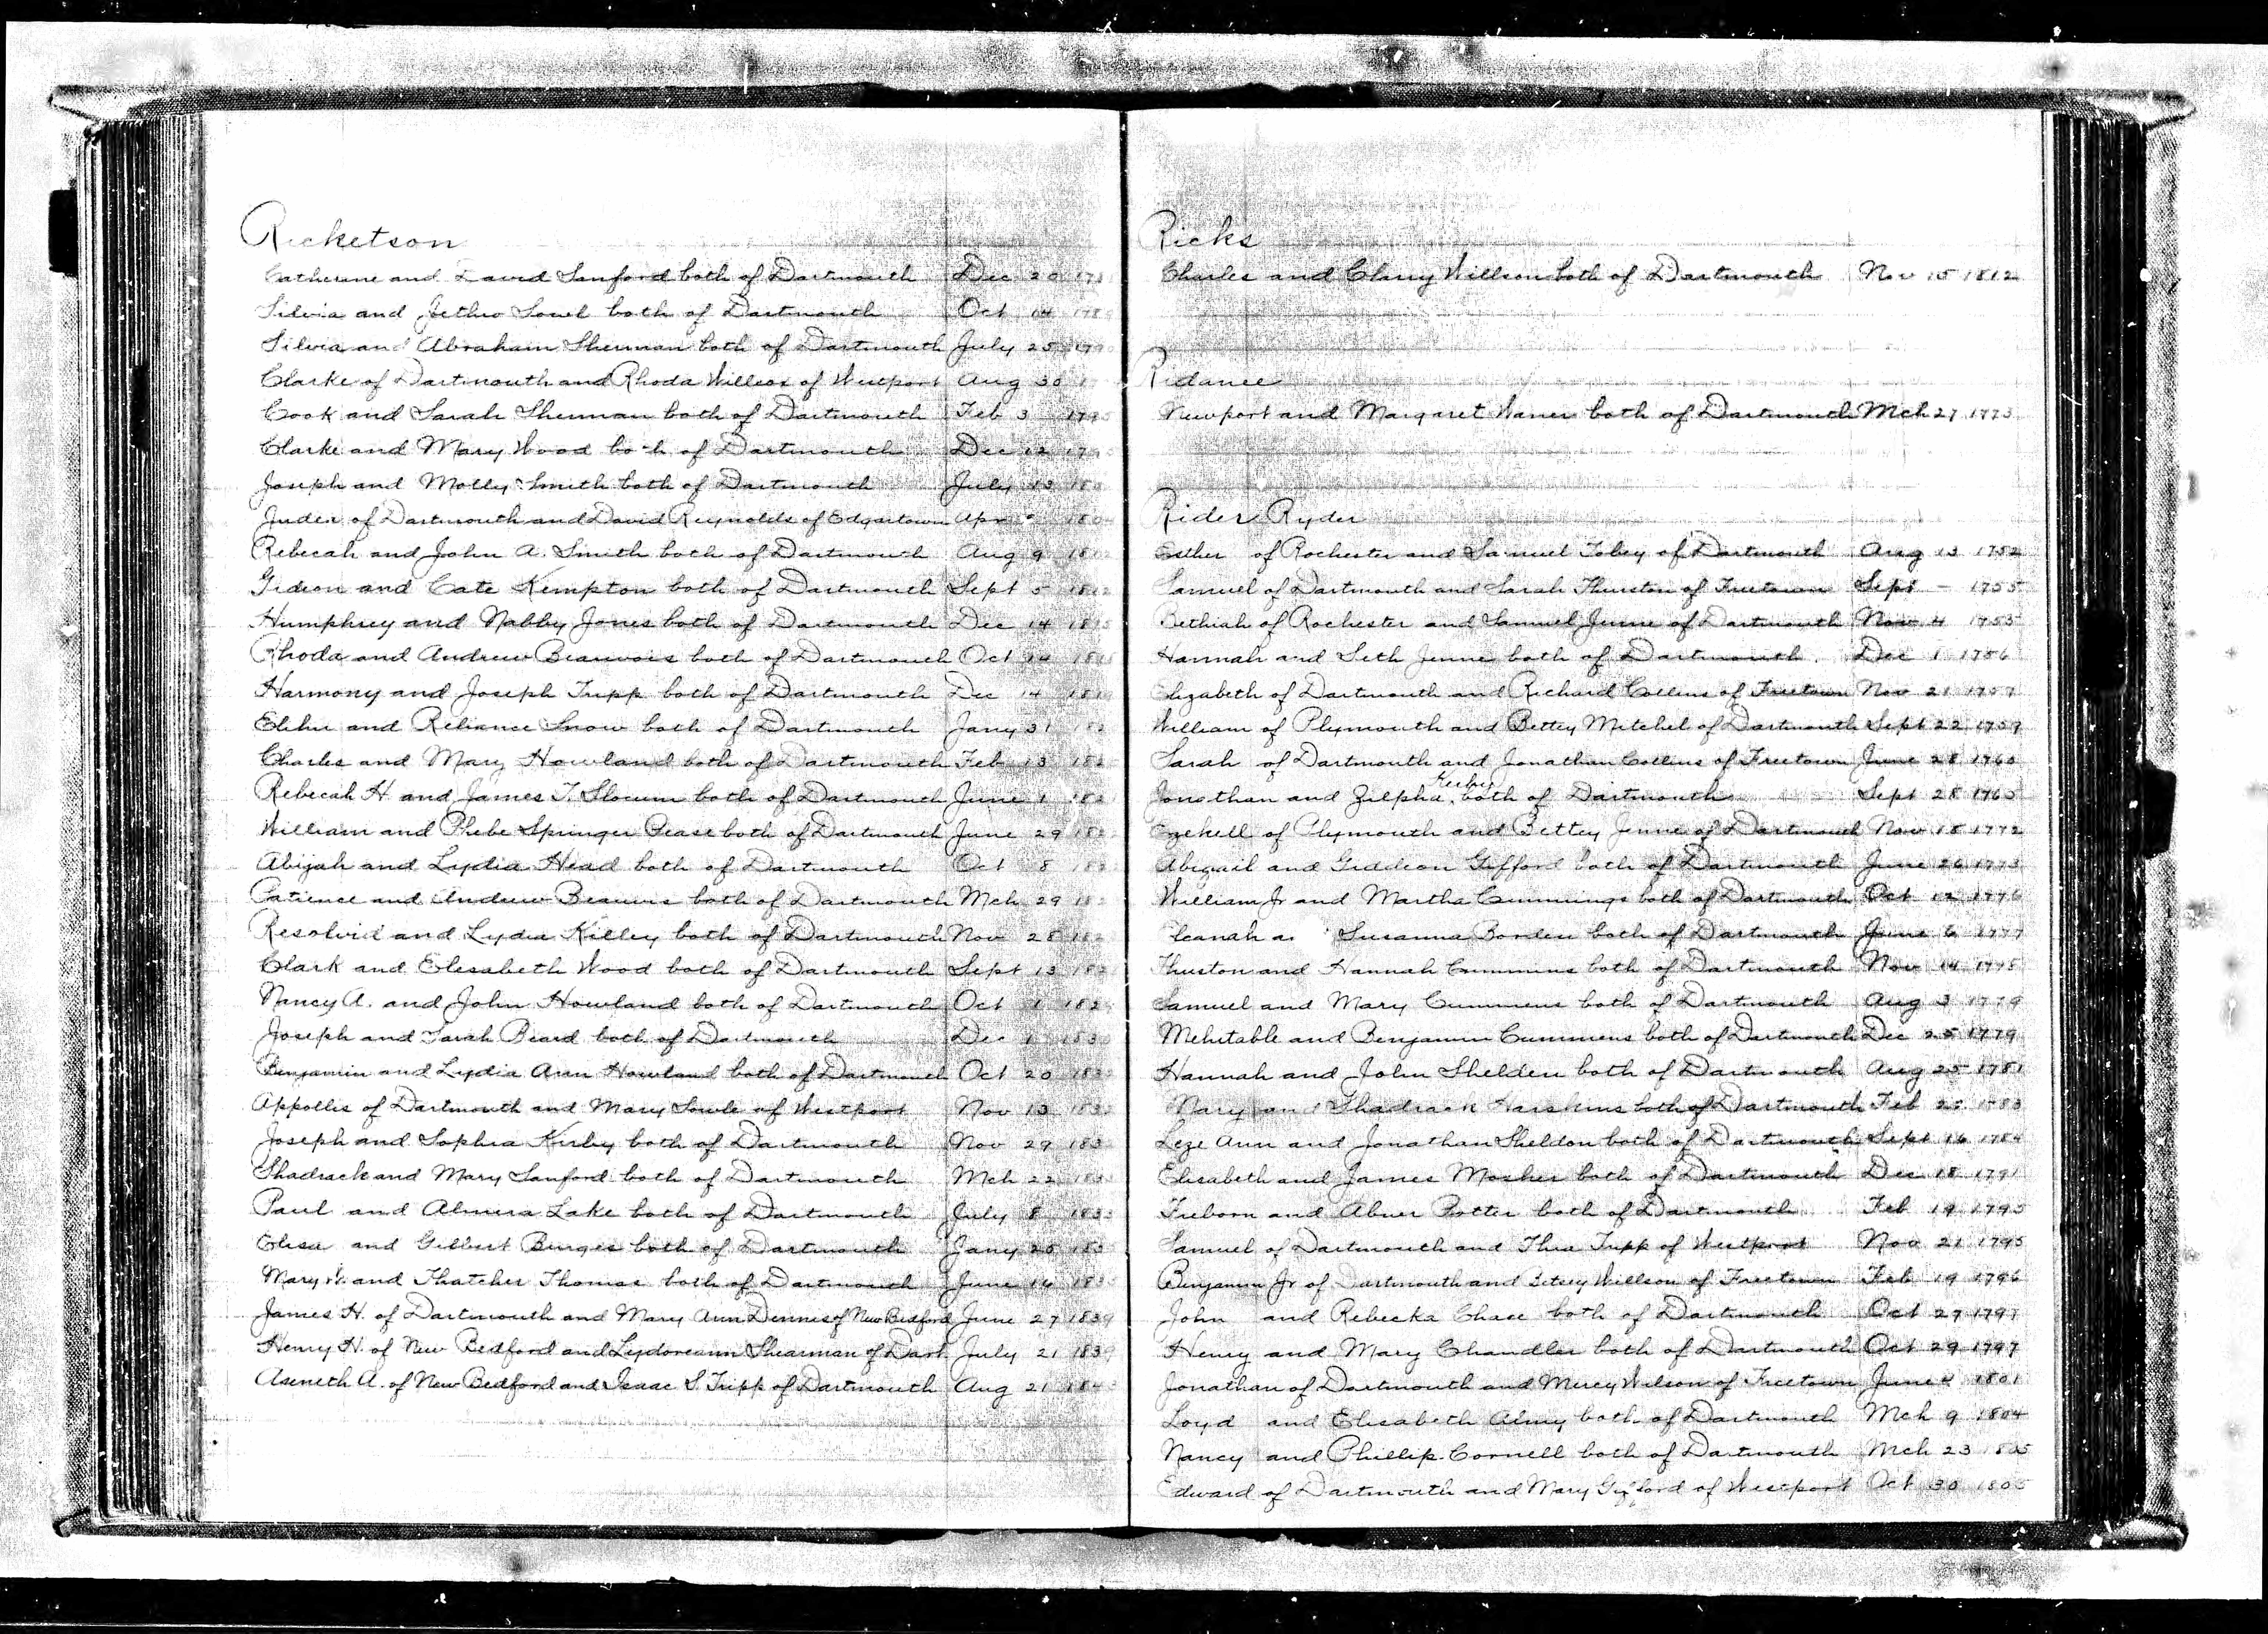 Ricketson
Catherine and David Sanford both of Dartmouth Dec 20
Silvia and Jethro Sowl both of Dartmouth Oct 14
Silvia and Abraham Sherman both of Dartmouth July 25
Clarke of Dartmouth and Rhoda Willcox of Westport Aug 30
Cook and Sarah Sherman both of Dartmouth Feb 3
Clarke and Mary Wood both of Dartmouth Dec 12
Joseph and Molly Smith both of Dartmouth July 13
of Dartmouth and David Reynolds of Edgartown Apr
Rebecah and John A. Smith both of Dartmouth Aug 9
Gideon and Cate Kempton both of Dartmouth Sept 5 1812
Humphrey and Nabby Jones both of Dartmouth Dec 14
Rhoda and Andrew Beauvois both of Dartmouth Oct
Harmony and Joseph Tripp both of Dartmouth Dec 14
Elihu and Reliance Snow both of Dartmouth Jany 31
Charles and Mary Howland both of Dartmouth Feb 13
Rebecah H. and James T. Slocum both of Dartmouth June 1
William and Phebe Springer Pease both of Dartmouth June 29
Abijah and Lydia Head both of Dartmouth Oct 8
Patience and Andrew Beauvis both of Dartmouth Mch 29
Resolvid and Lydia Killey both of Dartmouth Nov 28
Clark and Elisabeth Wood both of Dartmouth Sept 13
Nancy A. and John Howland both of Dartmouth Oct 1
Joseph and Sarah Beard both of Dartmouth Dec 1
Benjamin and Lydia Ann Howland both of Dartmouth Oct 20
Appollis of Dartmouth and Mary Sowle of Westport Nov 13
Joseph and Sophia Kirby both of Dartmouth Nov 29
Shadrack and Mary Sanford both of Dartmouth Mch 22
Paul and Almira Lake both of Dartmouth July 8
Elisa and Gilbert Burges both of Dartmouth Jany 25
Mary and Thatcher Thomas both of Dartmouth June 14
James H. of Dartmouth and Mary Ann Dennis of New Bedford June 27 1839
Henry H. of New Bedford and Lydoreann Shearman of Dart. July 21 1839
Aseneth A. of New Bedford and Isaac S. Tripp of Dartmouth Aug 21
Ricks
Charles and Clary Willson both of Dartmouth Nov 15 1812
Ridance
Newport and Margaret Waner both of Dartmouth Mch 27 1773
Rider Ryder
Esther of Rochester and Samuel Tobey of Dartmouth Aug 13 1752
Samuel of Dartmouth and Sarah Thurston of Freetown Sept - 1755
Bethiah of Rochester and Samuel Jenne of Dartmouth Nov 4 1753
Hannah and Seth Jenne both of Dartmouth. Dec 1 1756
Elizabeth of Dartmouth and Richard Collins of Freetown Nov 21 1757
William of Plymouth and Bettey Mitchel of Dartmouth Sept 22 1759
Sarah of Dartmouth and Jonathan Collins of Freetown June 28 1760
Jonathan and Zilpha both of Dartmouth Sept 28 1765
Ezekell of Plymouth and Bettey Jenne of Dartmouth Nov 18 1772
Abigail and Giddeon Gifford both of Dartmouth June 26 1773
William Jr and Martha Cummings both of Dartmouth Oct 12 1776
Susanna Borden both of Dartmouth June 6 1777
Thuston and Hannah Cummins both of Dartmouth Nov 14 1778
Samuel and Mary Cummens both of Dartmouth Aug 3 1779
Mehitable and Benjamin Cummens both of Dartmouth Dec 25 1779
Hannah and John Shelden both of Dartmouth Aug 25 1781
Mary and Shadrack Harskins both of Dartmouth Feb 1783
Leze Ann and Jonathan Sheldon both of Dartmouth Sept 16 1784
Elisabeth and James Mosher both of Dartmouth Dec 18 1791
Freborn and Abner Potter both of Dartmouth Feb 19 1795
Samuel of Dartmouth and Tripp of Westport Nov 21 1795
Benjamin Jr of Dartmouth and Betsey Willson of Freetown Feb 19 1796
John and Rebecka Chace both of Dartmouth Oct 27 1797
Henry and Mary Chandler both of Dartmouth Oct 29 1797
Jonathan of Dartmouth and Mercy Wilson of Freetown June 4 1801
Loyd and Elisabeth Almy both of Dartmouth Mch 9 1804
Nancy and Phillip Cornell both of Dartmouth Mch 23
Edward of Dartmouth and Mary Gifford of Westport Oct 30 1805